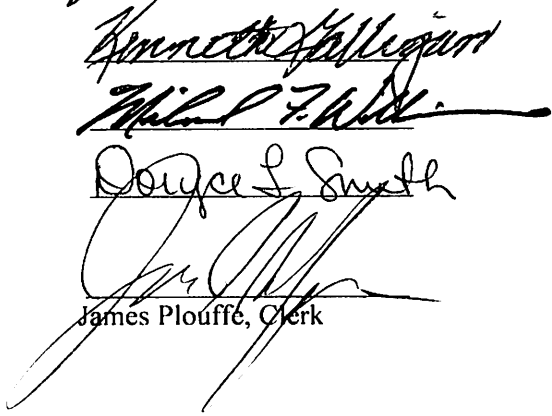 Kenneth Galligan
Michael F. W
Doryce L Smith
James Plouffe, Clerk